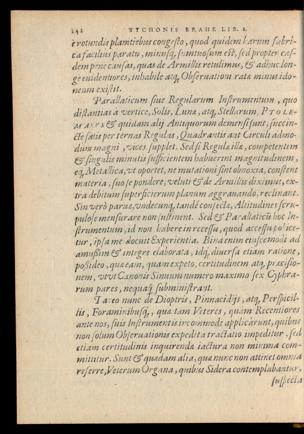 242 TYCHONIS BRAHE LIB. I.
è rotundis plantiebus congesto, quod quidem harum fabri-
ca facilius paratu, minusq́; sumtuosum est, sed propter eas-
dem pene causas, quas de Armillis retulimus, & adhuc lon-
ge euidentiores, inhabile atq́; Observationi rata minus ido-
neum existit.
Parallaticum siue Regularum Instrumentum, quo
distantias à vertice, Solis, Lunæ, atq́; Stellarum, PTOLE-
MAEVS & quidam alij Antiquorum dimensi sunt, succin-
ctè satis per ternas Regulas, Quadrantis aut Circuli admo-
dum magni, vices supplet. Sed si Regulæ illæ, competentem
& singulis minutis sufficientem habuerint magnitudinem,
eq́; Metallica, vt oportet, ne mutationi sint obnoxia, constent
materia, suo se pondere, veluti & de Armillis diximus, ex-
tra debitum superficierum planum aggravando, reclinant.
Sin verò parvæ, vndecunq́; tandē confectæ, Altitudines scru-
pulosè mensurare non sustinent. Sed & Parallaticū hoc In-
strumentum, id non habere in recessu, quod accessu pollice-
tur, ipsa me docuit Experientia. Bina enim eiuscemodi ad
amussim & integrè elaborata, idq́; diversa etiam ratione,
possideo, quæ eam, quam expeto, certitudinem atq́; præcisio-
nem, vt vt Canonis Sinuum numero maximo sex Cyphra-
rum pares, nequaq̃ subministrant.
Taceo nunc de Dioptris, Pinnacidijs, atq́; Perspicil-
lis, Foraminibusq́;, quæ tam Veteres, quam Recentiores
ante nos, suis Instrumentis incommodè applicârunt, quibus
non solùm Observationis expedita tractatio impeditur, sed
etiam certitudinis inquirendæ iactura non minima com-
mittitur. Sunt & quædam alia, quæ nunc non attinet omnia
referre, Veterum Organa, quibus Sidera contemplabantur,
suspecta